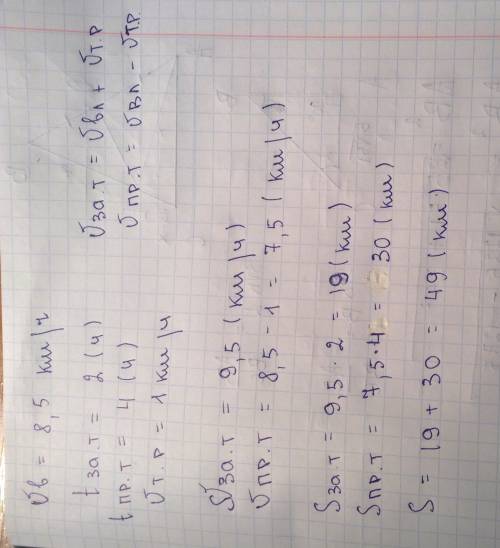 Vв = 8,5 км/ч
tза.т = 2 (ч)
tпр.т = 4 (ч)
Vт.р = 1 км/ч
Vза.т = Vвл + Vт.р
Vпр.т = Vвл - Vт.р.
Vза.т = 9,5 (км/ч)
Vпр.т = 8,5 - 1 = 7,5 (км/ч)
Sза.т = 9,5 · 2 = 19 (км)
Sпр.т = 7,5·4 = 30 (км)
S = 19 + 30 = 49 (км)